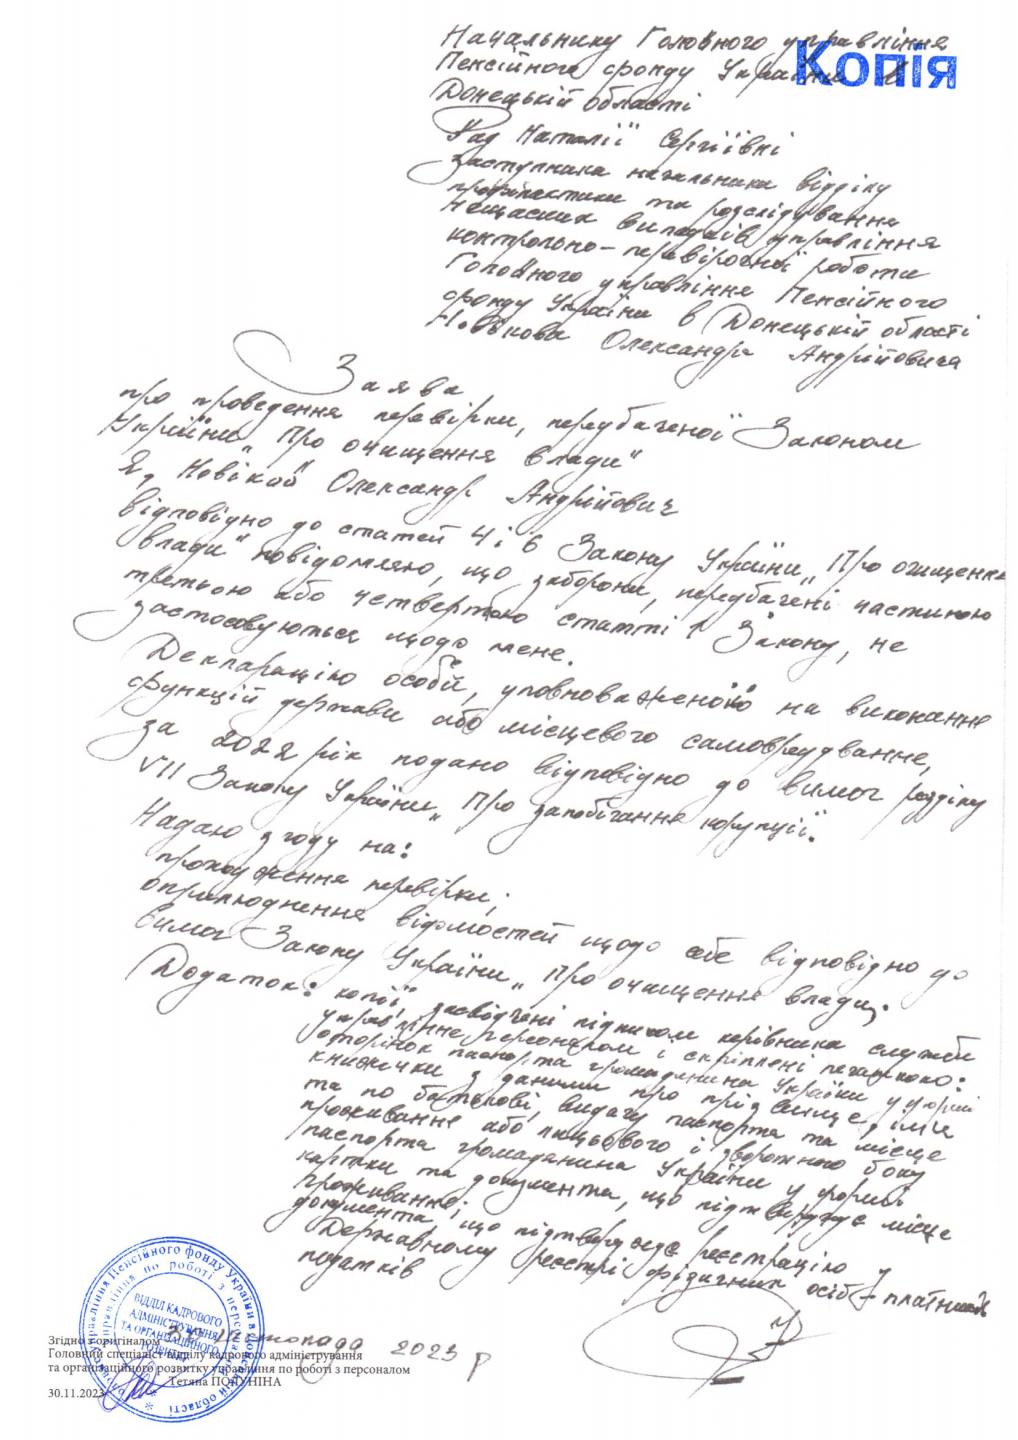 Копія
Начальнику Головного управління
Пенсійного фонду України в
Донецькій області
Рад Наталії Сергіївні
заступника начальника відділу
профілактики та розслідування
нещасних випадків управління
контрольно-перевірочної роботи
Головного управління Пенсійного
фонду України в Донецькій області
Новікова Олександра Андрійовича
Заява
про проведення перевірки, передбаченої Законом
України „Про очищення влади"
Я, Новіков Олександр Андрійович
відповідно до статей 4 і 6 Закону України „Про очищення
влади" повідомляю, що заборони, передбачені частиною
третьою або четвертою статті 1 Закону, не
застосовуються щодо мене.
Декларацію особи, уповноваженої на виконання
функцій держави або місцевого самоврядування,
за 2022 рік подано відповідно до вимог розділу
VII Закону України „Про запобігання корупції".
Надаю згоду на:
проходження перевірки;
оприлюднення відомостей щодо себе відповідно до
вимог Закону України „Про очищення влади".
Додаток: копії, засвідчені підписом керівника служби
управління персоналом і скріплені печаткою:
сторінок паспорта громадянина України у формі
книжечки з даними про прізвище, ім'я
та по батькові, видачу паспорта та місце
проживання або лицьового і зворотного боку
паспорта громадянина України у формі
картки та документа, що підтверджує місце
проживання;
документа, що підтверджує реєстрацію у
Державному реєстрі фізичних осіб – платників
податків
листопада 2023 р
Згідно з оригіналом
Головний спеціаліст відділу кадрового адміністрування
та організаційного розвитку управління по роботі з персоналом
Тетяна
30.11.2023
управління Пенсійного фонду України в Донецькій області
управління по роботі з персоналом
ВІДДІЛ КАДРОВОГО
АДМІНІСТРУВАННЯ
ТА ОРГАНІЗАЦІЙНОГО
РОЗВИТКУ